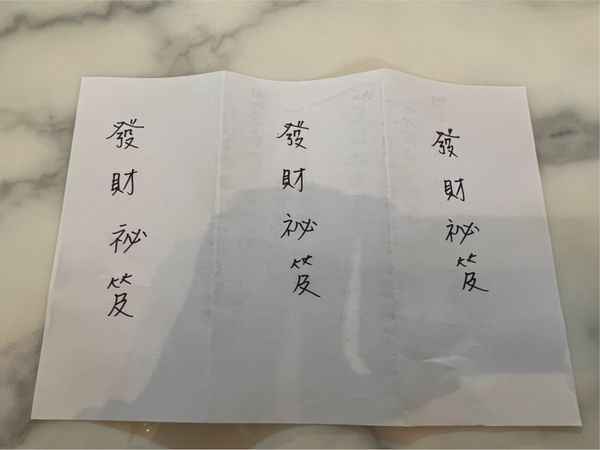 發財祕笈
發財祕笈
發財祕笈